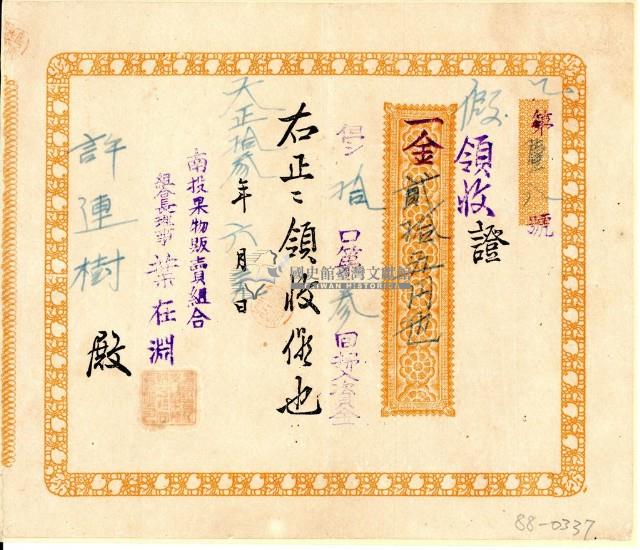 第 八號
假領收證
一金貳拾五円也
但シ拾口第参回拂込資金
右正ニ領收候也
大正拾参年六月 日
南投果物販賣組合
組合長理事 葉在淵
許連樹 殿
國史館臺灣文獻館
TAIWAN HISTORICA
88-0337